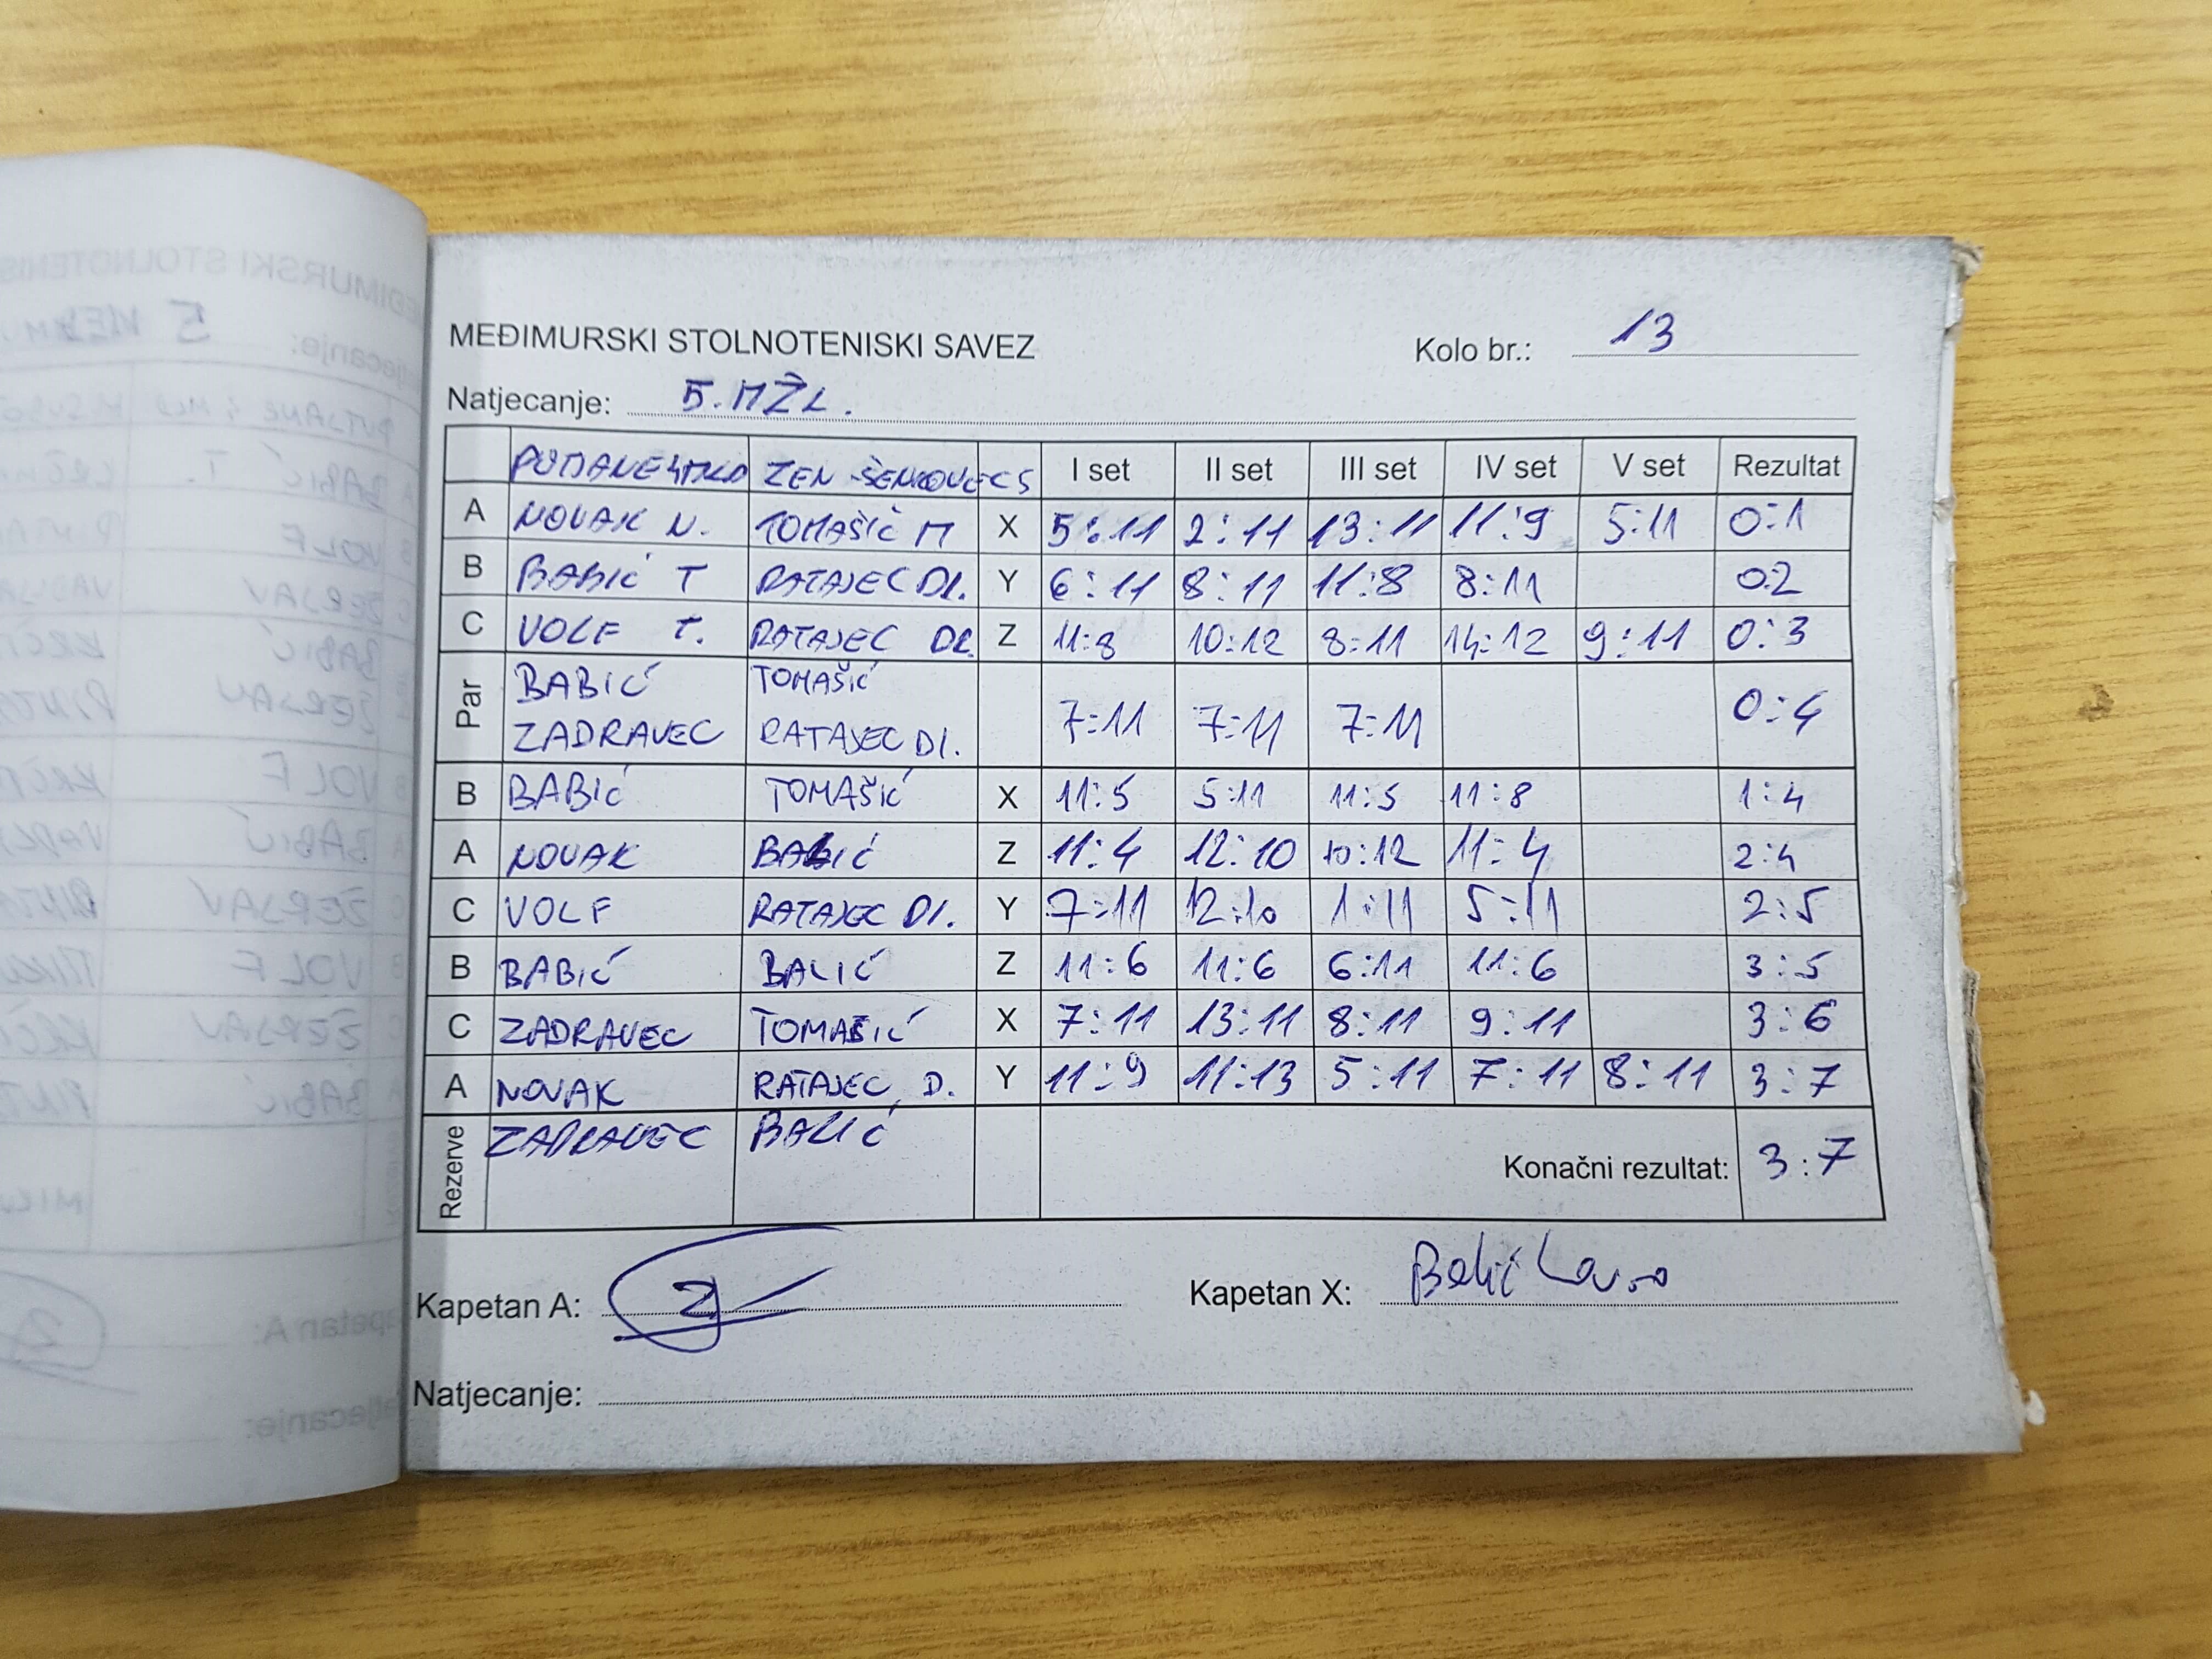 MEĐIMURSKI STOLNOTENISKI SAVEZ
Kolo br.: 13
Natjecanje: 5. MŽL.
ZEN -ŠENKOVEC 5 I set II set III set IV set V set Rezultat
A NOVAK N. TOMAŠIĆ M X 5:11 2:11 13:11 11:9 5:11 0:1
B BABIĆ T RATAJEC DI. Y 6:11 8:11 11:8 8:11 0:2
C VOLF T. RATAJEC DR. Z 11:8 10:12 8:11 14:12 9:11 0:3
Par BABIĆ TOMAŠIĆ
ZADRAVEC RATAJEC DI. 7:11 7:11 7:11 0:4
B BABIĆ TOMAŠIĆ X 11:5 5:11 11:5 11:8 1:4
A NOVAK BALIĆ Z 11:4 12:10 10:12 11:4 2:4
C VOLF RATAJEC DI. Y 7:11 12:10 1:11 5:11 2:5
B BABIĆ BALIĆ Z 11:6 11:6 6:11 11:6 3:5
C ZADRAVEC TOMAŠIĆ X 7:11 13:11 8:11 9:11 3:6
A NOVAK RATAJEC, D. Y 11:9 11:13 5:11 7:11 8:11 3:7
Rezerve ZADRAVEC BALIĆ
Konačni rezultat: 3:7
Kapetan A: Kapetan X:
Natjecanje: